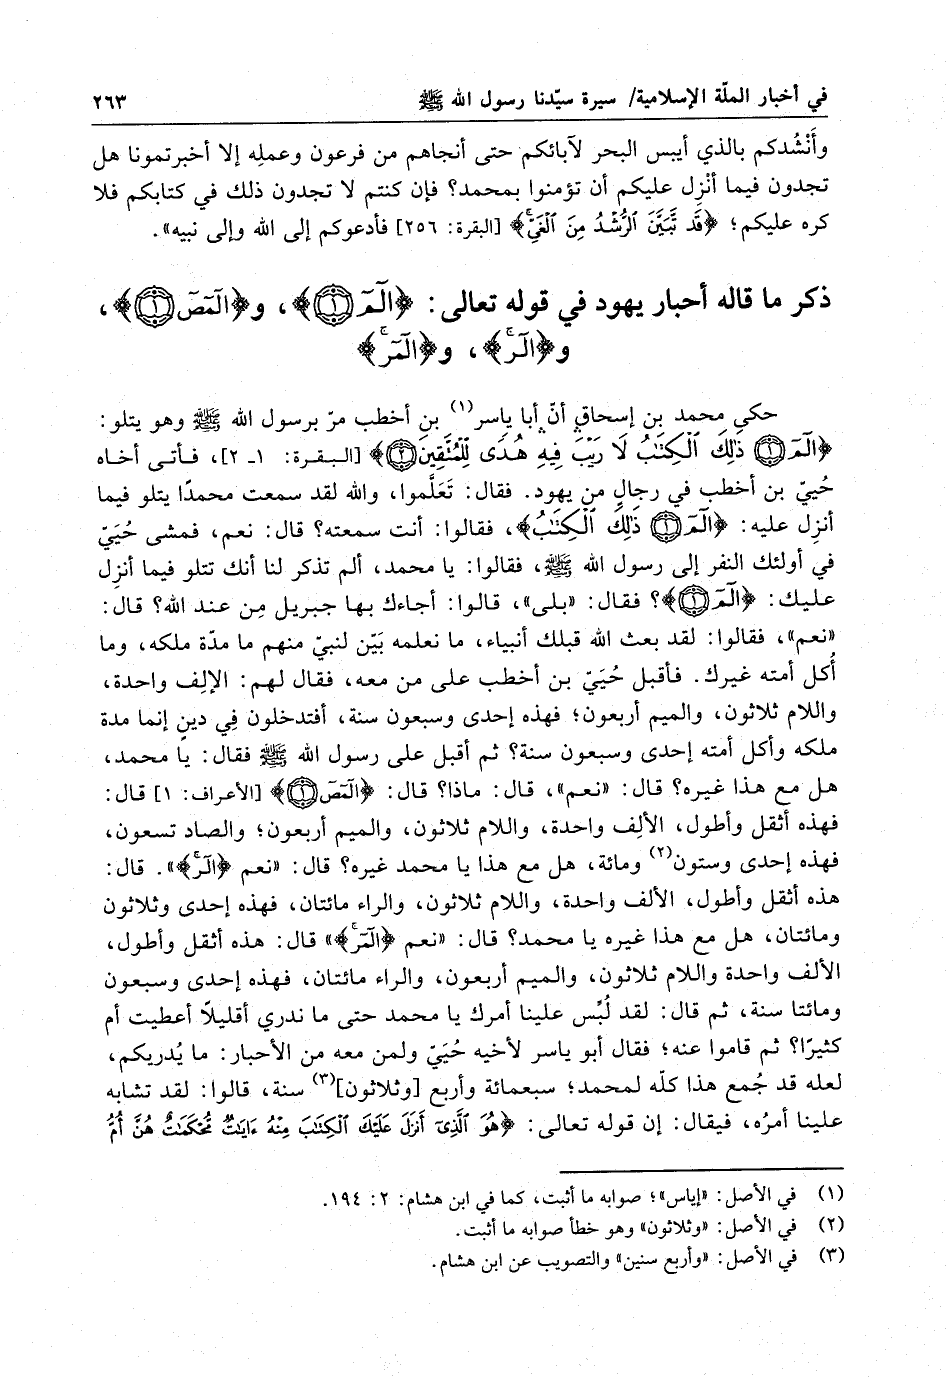 في أخبار الملّة الإسلامية/ سيرة سيّدنا رسول الله ﷺ ٢٦٣
وأَنْشُدكم بالذي أيبس البحر لآبائكم حتى أنجاهم من فرعون وعملِه إلا أخبرتمونا هل
تجدون فيما أنْزِل عليكم أن تؤمنوا بمحمد؟ فإن كنتم لا تجدون ذلك في كتابكم فلا
كره عليكم؛ ﴿قَد تَّبَيَّنَ ٱلرُّشْدُ مِنَ ٱلْغَيِّۚ﴾ [البقرة: ٢٥٦] فأدعوكم إلى الله وإلى نبيه».
ذكر ما قاله أحبار يهود في قوله تعالى: ﴿الٓمٓ ١﴾، و﴿الٓمٓصٓ ١﴾،
و﴿الٓرۚ﴾، و﴿الٓمٓرۚ﴾
حكى محمد بن إسحاق أنّ أبا ياسر(١) بن أخطب مرّ برسول الله ﷺ وهو يتلو:
﴿الٓمٓ ١ ذَٰلِكَ ٱلْكِتَٰبُ لَا رَيْبَ فِيهِ هُدًى لِّلْمُتَّقِينَ ٢﴾ [البقرة: ١ـ ٢]، فأتى أخاه
حُييّ بن أخطب في رجالٍ من يهود. فقال: تَعَلَّموا، والله لقد سمعت محمدًا يتلو فيما
أنزِل عليه: ﴿الٓمٓ ١ ذَٰلِكَ ٱلْكِتَٰبُ﴾، فقالوا: أنت سمعته؟ قال: نعم، فمشى حُيَيّ
في أولئك النفر إلى رسول الله ﷺ، فقالوا: يا محمد، ألم تذكر لنا أنك تتلو فيما أنزِل
عليك: ﴿الٓمٓ ١﴾؟ فقال: «بلى»، قالوا: أجاءك بها جبريل مِن عند الله؟ قال:
«نعم»، فقالوا: لقد بعث الله قبلك أنبياء، ما نعلمه بَيّن لنبيّ منهم ما مدّة ملكه، وما
أُكل أمته غيرك. فأقبل حُيَيّ بن أخطب على من معه، فقال لهم: الإلِف واحدة،
واللام ثلاثون، والميم أربعون؛ فهذه إحدى وسبعون سنة، أفتدخلون فِي دينٍ إنما مدة
ملكه وأكل أمته إحدى وسبعون سنة؟ ثم أقبل على رسول الله ﷺ فقال: يا محمد،
هل مع هذا غيره؟ قال: «نعم»، قال: ماذا؟ قال: ﴿الٓمٓصٓ ١﴾ [الأعراف: ١] قال:
فهذه أثقل وأطول، الألِف واحدة، واللام ثلاثون، والميم أربعون؛ والصاد تسعون،
فهذه إحدى وستون(٢) ومائة، هل مع هذا يا محمد غيره؟ قال: «نعم ﴿الٓرۚ﴾». قال:
هذه أثقل وأطول، الألف واحدة، واللام ثلاثون، والراء مائتان، فهذه إحدى وثلاثون
ومائتان، هل مع هذا غيره يا محمد؟ قال: «نعم ﴿الٓمٓرۚ﴾» قال: هذه أثقل وأطول،
الألف واحدة واللام ثلاثون، والميم أربعون، والراء مائتان، فهذه إحدى وسبعون
ومائتا سنة، ثم قال: لقد لُبِّس علينا أمرك يا محمد حتى ما ندري أقليلًا أعطيت أم
كثيرًا؟ ثم قاموا عنه؛ فقال أبو ياسر لأخيه حُيَيّ ولمن معه من الأحبار: ما يُدريكم،
لعله قد جُمع هذا كلّه لمحمد؛ سبعمائة وأربع [وثلاثون](٣) سنة، قالوا: لقد تشابه
علينا أمرُه، فيقال: إن قوله تعالى: ﴿هُوَ ٱلَّذِىٓ أَنزَلَ عَلَيْكَ ٱلْكِتَٰبَ مِنْهُ ءَايَٰتٌ مُّحْكَمَٰتٌ هُنَّ أُمُّ
(١) في الأصل: «إياس»؛ صوابه ما أثبت، كما في ابن هشام: ٢: ١٩٤.
(٢) في الأصل: «وثلاثون» وهو خطأ صوابه ما أثبت.
(٣) في الأصل: «وأربع سنين» والتصويب عن ابن هشام.